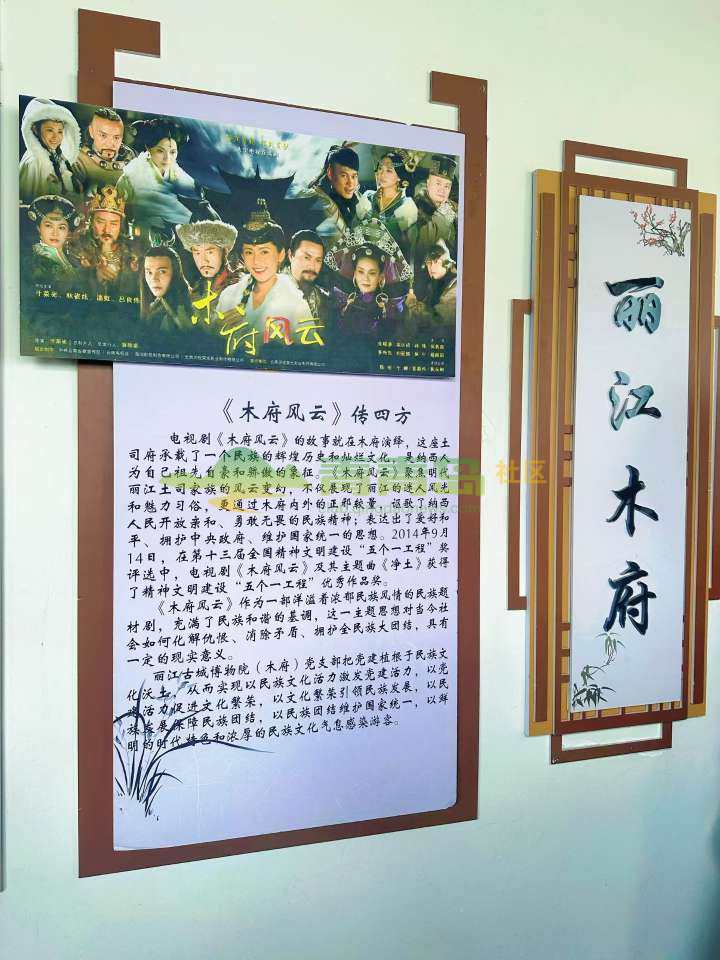 木府风云
《木府风云》传四方
电视剧《木府风云》的故事就在木府演绎，这座土
司府承载了一个民族的辉煌历史和灿烂文化，是纳西人
为自己祖先自豪和骄傲的象征。《木府风云》聚焦明代
丽江土司家族的风云变幻，不仅展现了丽江的迷人风光
和魅力习俗，更通过木府内外的正邪较量，讴歌了纳西
人民开放亲和、勇敢无畏的民族精神；表达出了爱好和
平、拥护中央政府、维护国家统一的思想。2014年9月
14日，在第十三届全国精神文明建设“五个一工程”奖
评选中，电视剧《木府风云》及其主题曲《净土》获得
了精神文明建设“五个一工程”优秀作品奖。
《木府风云》作为一部洋溢着浓郁民族风情的民族题
材剧，充满了民族和谐的基调，这一主题思想对当今社
会如何化解仇恨、消除矛盾、拥护全民族大团结，具有
一定的现实意义。
丽江古城博物院（木府）党支部把党建植根于民族文
化沃土，从而实现以民族文化活力激发党建活力，以党
建活力促进文化繁荣，以文化繁荣引领民族发展，以民
族发展保障民族团结，以民族团结维护国家统一，以鲜
明的时代特色和浓厚的民族文化气息感染游客。
丽江木府
社区